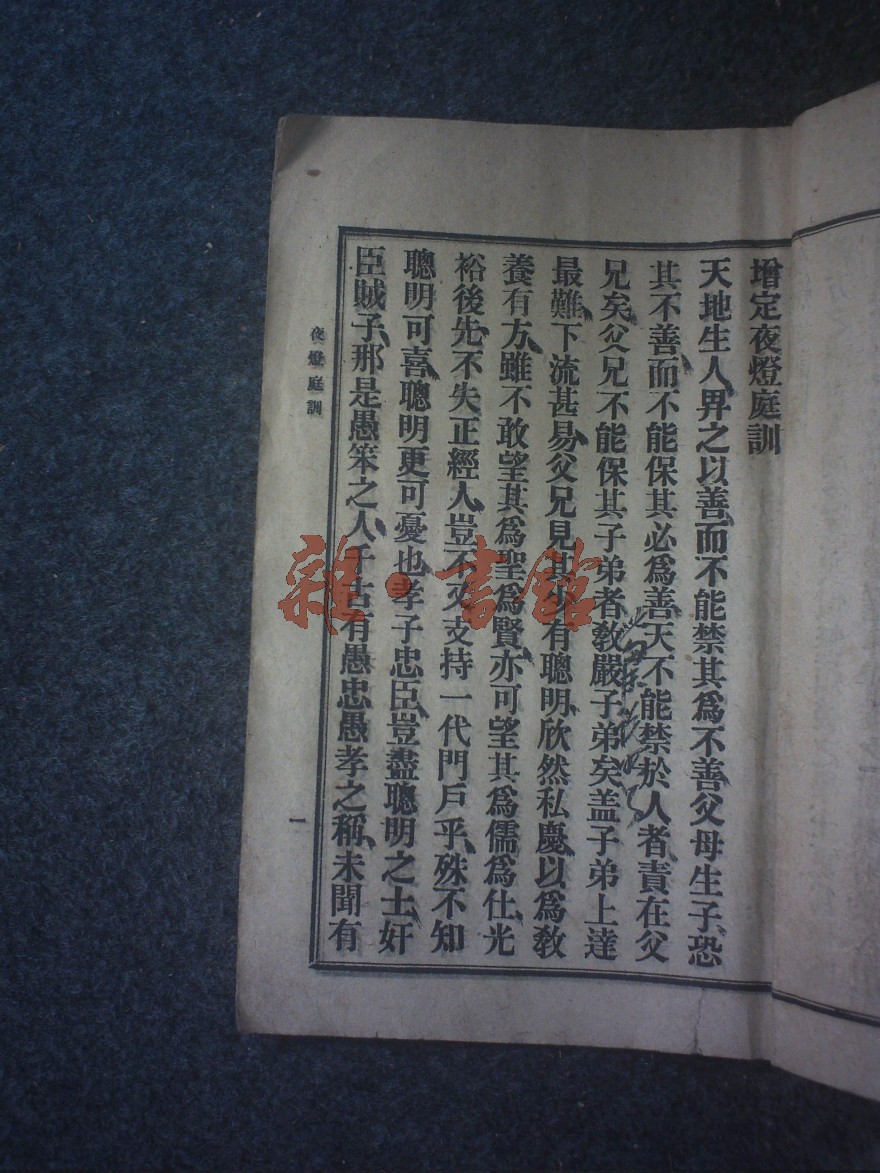 增定夜燈庭訓
天地生人畀之以善、而不能禁其爲不善、父母生子、恐
其不善、而不能保其必爲善、天不能禁於人者、責在父
兄矣、父兄不能保其子弟者、敎嚴子弟矣、盖子弟上達
最難、下流甚易、父兄見其有聰明、欣然私慶、以爲敎
養有方、雖不敢望其爲聖爲賢、亦可望其爲儒爲仕、光
裕後先、不失正經人、豈不又支持一代門戶乎、殊不知
聰明可喜、聰明更可憂也、孝子忠臣、豈盡聰明之士、奸
臣賊子、那是愚笨之人、千古有愚忠愚孝之稱、未聞有
夜燈庭訓
一
雜·書館